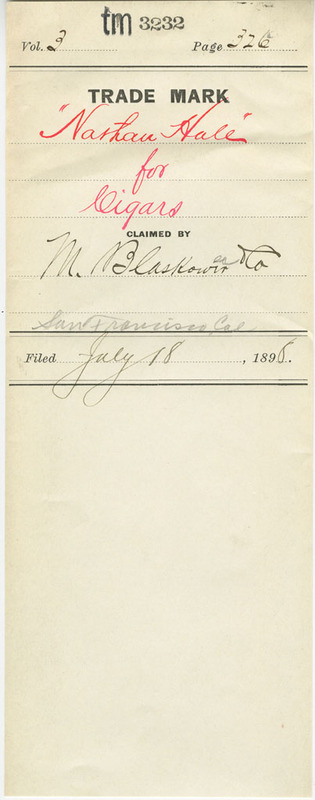 tm 3232
Vol. 3 Page 326
TRADE MARK
"Nathan Hale"
for
Cigars
CLAIMED BY
M. Blaskower & Co
San Francisco Cal
Filed July 18, 1898.